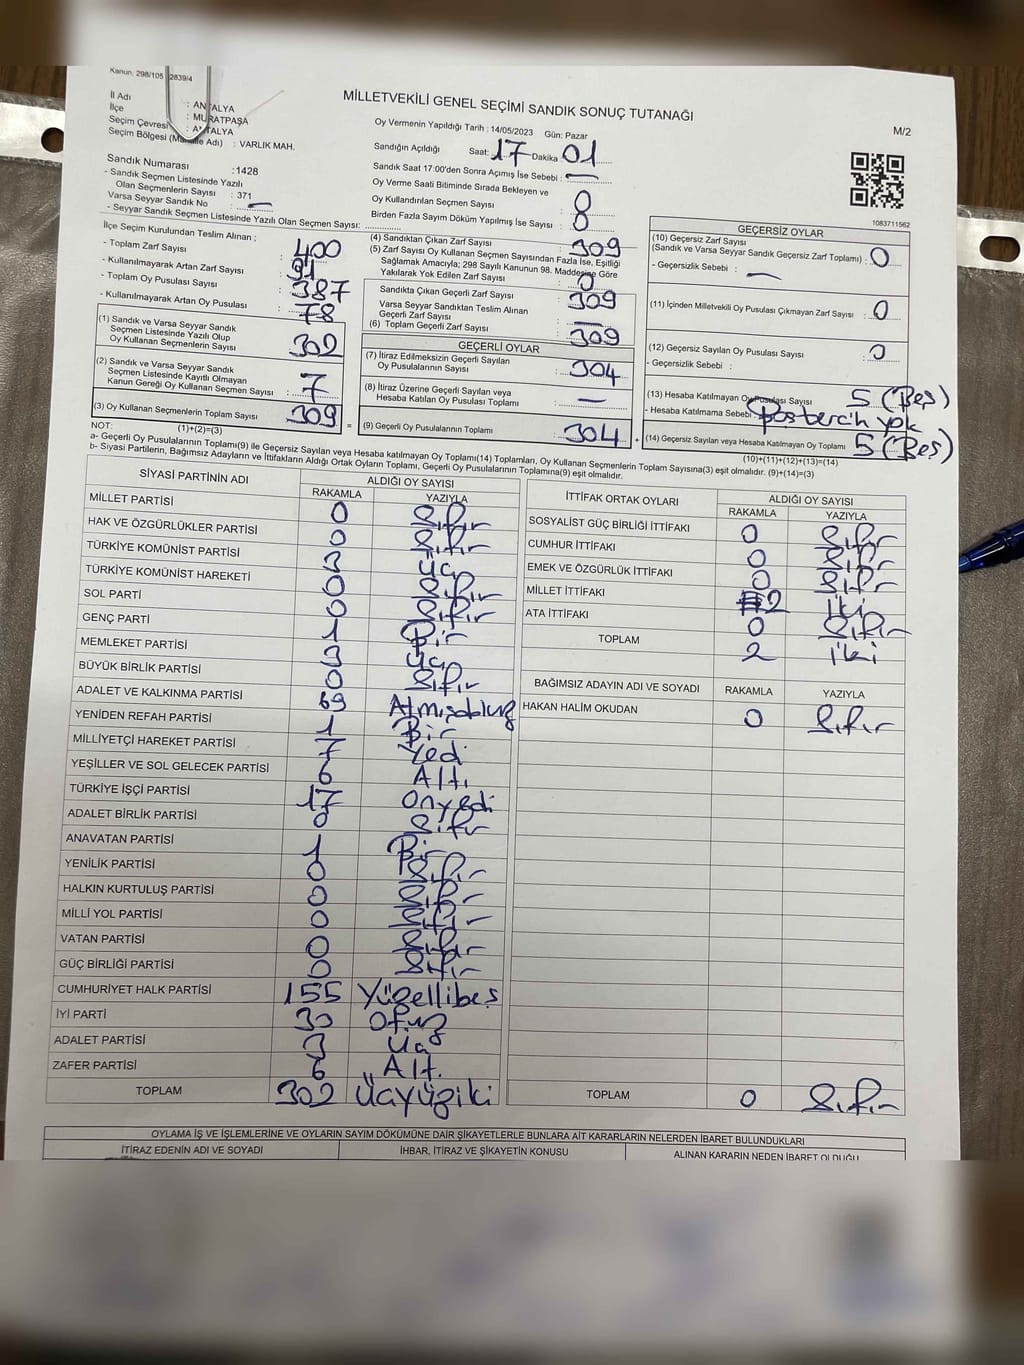 Kanun. 298/105 2839/4
MİLLETVEKİLİ GENEL SEÇİMİ SANDIK SONUÇ TUTANAĞI
M/2
İl Adı : ANTALYA
İlçe : MURATPAŞA
Seçim Çevresi : ANTALYA
Seçim Bölgesi (Mahalle Adı) : VARLIK MAH.
Sandık Numarası :1428
- Sandık Seçmen Listesinde Yazılı
Olan Seçmenlerin Sayısı : 371
Varsa Seyyar Sandık No : —
- Seyyar Sandık Seçmen Listesinde Yazılı Olan Seçmen Sayısı:
Oy Vermenin Yapıldığı Tarih : 14/05/2023 Gün: Pazar
Sandığın Açıldığı Saat: 17 Dakika 01
Sandık Saat 17:00'den Sonra Açımış İse Sebebi : —
Oy Verme Saati Bitiminde Sırada Bekleyen ve
Oy Kullandırılan Seçmen Sayısı : 0
Birden Fazla Sayım Döküm Yapılmış İse Sayısı : 0
1083711562
İlçe Seçim Kurulundan Teslim Alınan ;
- Toplam Zarf Sayısı : 400
- Kullanılmayarak Artan Zarf Sayısı : 91
- Toplam Oy Pusulası Sayısı : 387
- Kullanılmayarak Artan Oy Pusulası : 78
(1) Sandık ve Varsa Seyyar Sandık
Seçmen Listesinde Yazılı Olup
Oy Kullanan Seçmenlerin Sayısı : 302
(2) Sandık ve Varsa Seyyar Sandık
Seçmen Listesinde Kayıtlı Olmayan
Kanun Gereği Oy Kullanan Seçmen Sayısı : 7
(3) Oy Kullanan Seçmenlerin Toplam Sayısı : 309
(1)+(2)=(3)
(4) Sandıktan Çıkan Zarf Sayısı : 309
(5) Zarf Sayısı Oy Kullanan Seçmen Sayısından Fazla İse, Eşitliği
Sağlamak Amacıyla; 298 Sayılı Kanunun 98. Maddesine Göre
Yakılarak Yok Edilen Zarf Sayısı : 0
Sandıkta Çıkan Geçerli Zarf Sayısı : 309
Varsa Seyyar Sandıktan Teslim Alınan
Geçerli Zarf Sayısı : —
(6) Toplam Geçerli Zarf Sayısı : 309
GEÇERLİ OYLAR
(7) İtiraz Edilmeksizin Geçerli Sayılan
Oy Pusulalarının Sayısı : 304
(8) İtiraz Üzerine Geçerli Sayılan veya
Hesaba Katılan Oy Pusulası Toplamı : —
= (9) Geçerli Oy Pusulalarının Toplamı : 304 +
GEÇERSİZ OYLAR
(10) Geçersiz Zarf Sayısı
(Sandık ve Varsa Seyyar Sandık Geçersiz Zarf Toplamı) : 0
- Geçersizlik Sebebi : —
(11) İçinden Milletvekili Oy Pusulası Çıkmayan Zarf Sayısı : 0
(12) Geçersiz Sayılan Oy Pusulası Sayısı : 0
- Geçersizlik Sebebi :
(13) Hesaba Katılmayan Oy Pusulası Sayısı : 5 (Beş)
- Hesaba Katılmama Sebebi : yok
(14) Geçersiz Sayılan veya Hesaba Katılmayan Oy Toplamı : 5 (Beş)
(10)+(11)+(12)+(13)=(14)
NOT:
a- Geçerli Oy Pusulalarının Toplamı(9) ile Geçersiz Sayılan veya Hesaba katılmayan Oy Toplamı(14) Toplamları, Oy Kullanan Seçmenlerin Toplam Sayısına(3) eşit olmalıdır. (9)+(14)=(3)
b- Siyasi Partilerin, Bağımsız Adayların ve İttifakların Aldığı Ortak Oyların Toplamı, Geçerli Oy Pusulalarının Toplamına(9) eşit olmalıdır.
SİYASİ PARTİNİN ADI ALDIĞI OY SAYISI
RAKAMLA YAZIYLA
MİLLET PARTİSİ 0 Sıfır
HAK VE ÖZGÜRLÜKLER PARTİSİ 0 Sıfır
TÜRKİYE KOMÜNİST PARTİSİ 3 Üç
TÜRKİYE KOMÜNİST HAREKETİ 0 Sıfır
SOL PARTİ 0 Sıfır
GENÇ PARTİ 1 Bir
MEMLEKET PARTİSİ 3 Üç
BÜYÜK BİRLİK PARTİSİ 0 Sıfır
ADALET VE KALKINMA PARTİSİ 69 Atmışdokuz
YENİDEN REFAH PARTİSİ 1 Bir
MİLLİYETÇİ HAREKET PARTİSİ 7 Yedi
YEŞİLLER VE SOL GELECEK PARTİSİ 6 Altı
TÜRKİYE İŞÇİ PARTİSİ 17 Onyedi
ADALET BİRLİK PARTİSİ 0 Sıfır
ANAVATAN PARTİSİ 1 Bir
YENİLİK PARTİSİ 0 Sıfır
HALKIN KURTULUŞ PARTİSİ 0 Sıfır
MİLLİ YOL PARTİSİ 0 Sıfır
VATAN PARTİSİ 0 Sıfır
GÜÇ BİRLİĞİ PARTİSİ 0 Sıfır
CUMHURİYET HALK PARTİSİ 155 Yüzellibeş
İYİ PARTİ 30 Otuz
ADALET PARTİSİ 3 Üç
ZAFER PARTİSİ 6 Altı
TOPLAM 302 Üçyüziki
İTTİFAK ORTAK OYLARI ALDIĞI OY SAYISI
RAKAMLA YAZIYLA
SOSYALİST GÜÇ BİRLİĞİ İTTİFAKI 0 Sıfır
CUMHUR İTTİFAKI 0 Sıfır
EMEK VE ÖZGÜRLÜK İTTİFAKI 0 Sıfır
MİLLET İTTİFAKI 2 İki
ATA İTTİFAKI 0 Sıfır
TOPLAM 2 İki
BAĞIMSIZ ADAYIN ADI VE SOYADI RAKAMLA YAZIYLA
HAKAN HALİM OKUDAN 0 Sıfır
TOPLAM 0 Sıfır
OYLAMA İŞ VE İŞLEMLERİNE VE OYLARIN SAYIM DÖKÜMÜNE DAİR ŞİKAYETLERLE BUNLARA AİT KARARLARIN NELERDEN İBARET BULUNDUKLARI
İTİRAZ EDENİN ADI VE SOYADI İHBAR, İTİRAZ VE ŞİKAYETİN KONUSU ALINAN KARARIN NEDEN İBARET OLDUĞU